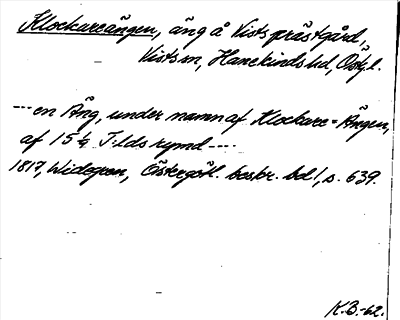 Klockareängen, äng å Vists prästgård,
Vists sn, Hanekinds hd, Östgl.
--- en Äng, under namn af Klockare=Ängen,
af 15 1/4 T:lds rymd ---.
1817, Widegren, Östergötl. beskr. bd 1, s. 639.
K.B.-62.